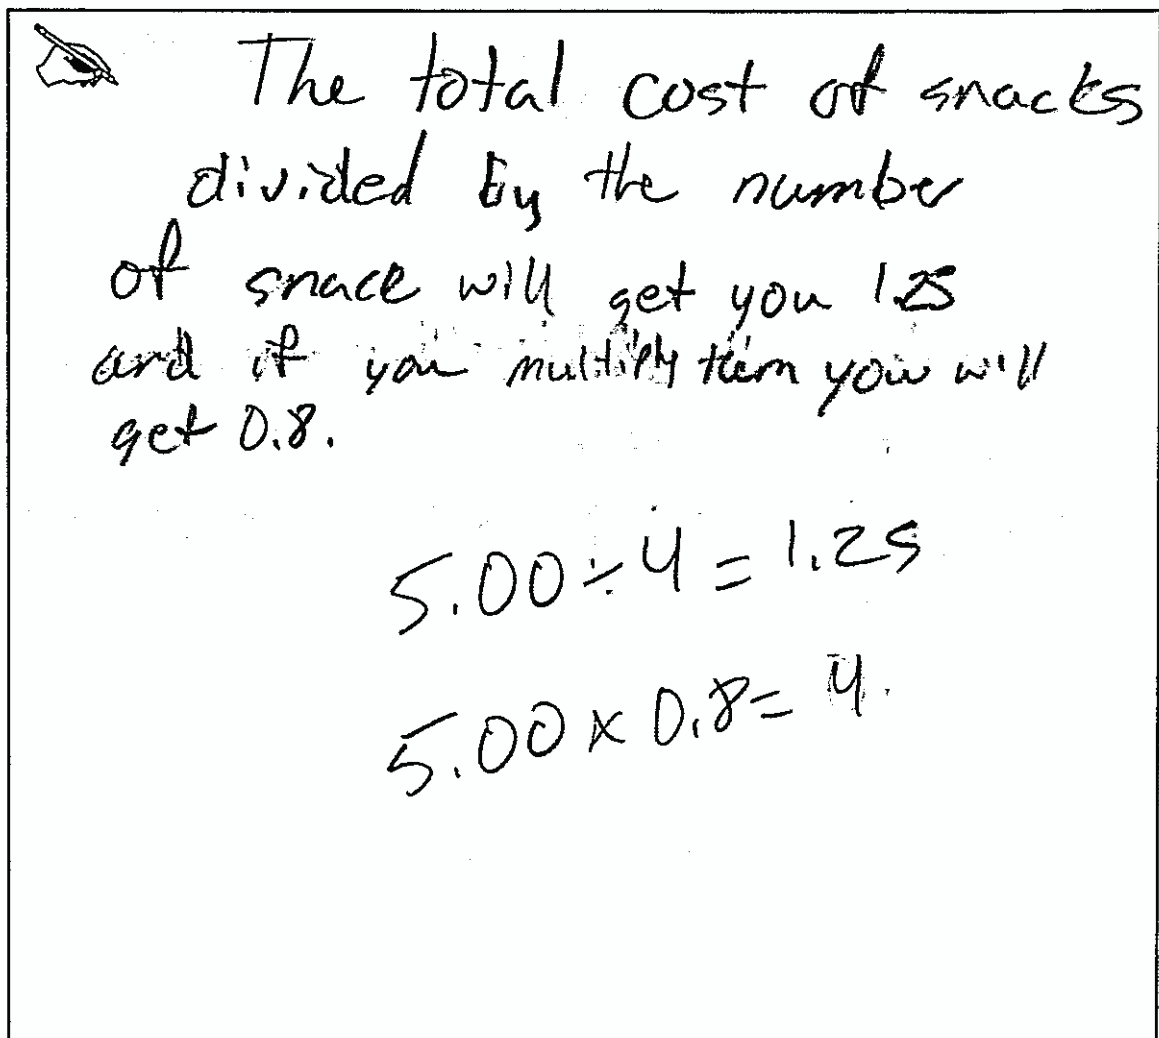 The total cost of snacks
divided by the number
of snack will get you 1.25
and if you multiply them you will
get 0.8.
5.00 ÷ 4 = 1.25
5.00 x 0.8 = 4.